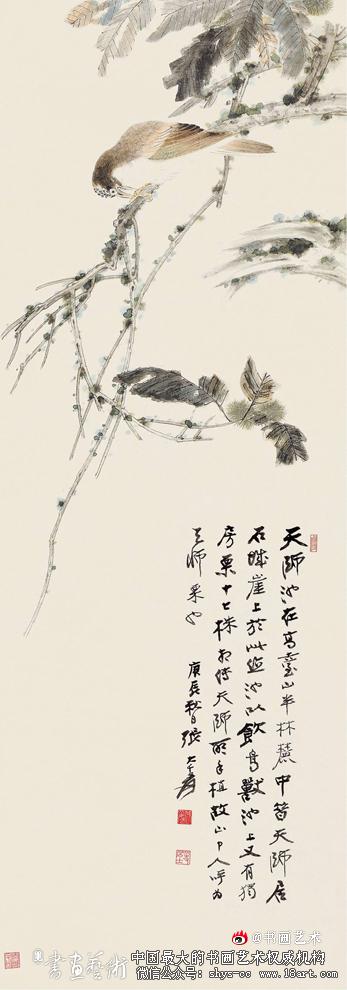 天师池在高臺山半林麓中昔天师居
石城崖上於此造池以飲鳥獸池上又有獨
房栗十七株相传天师所手植故山中人呼为
天师栗也
庚辰秋日張大千爰
@书画艺术
書画藝術
中国最大的书画艺术权威机构
微信公众号：shys-cc www.18art.com